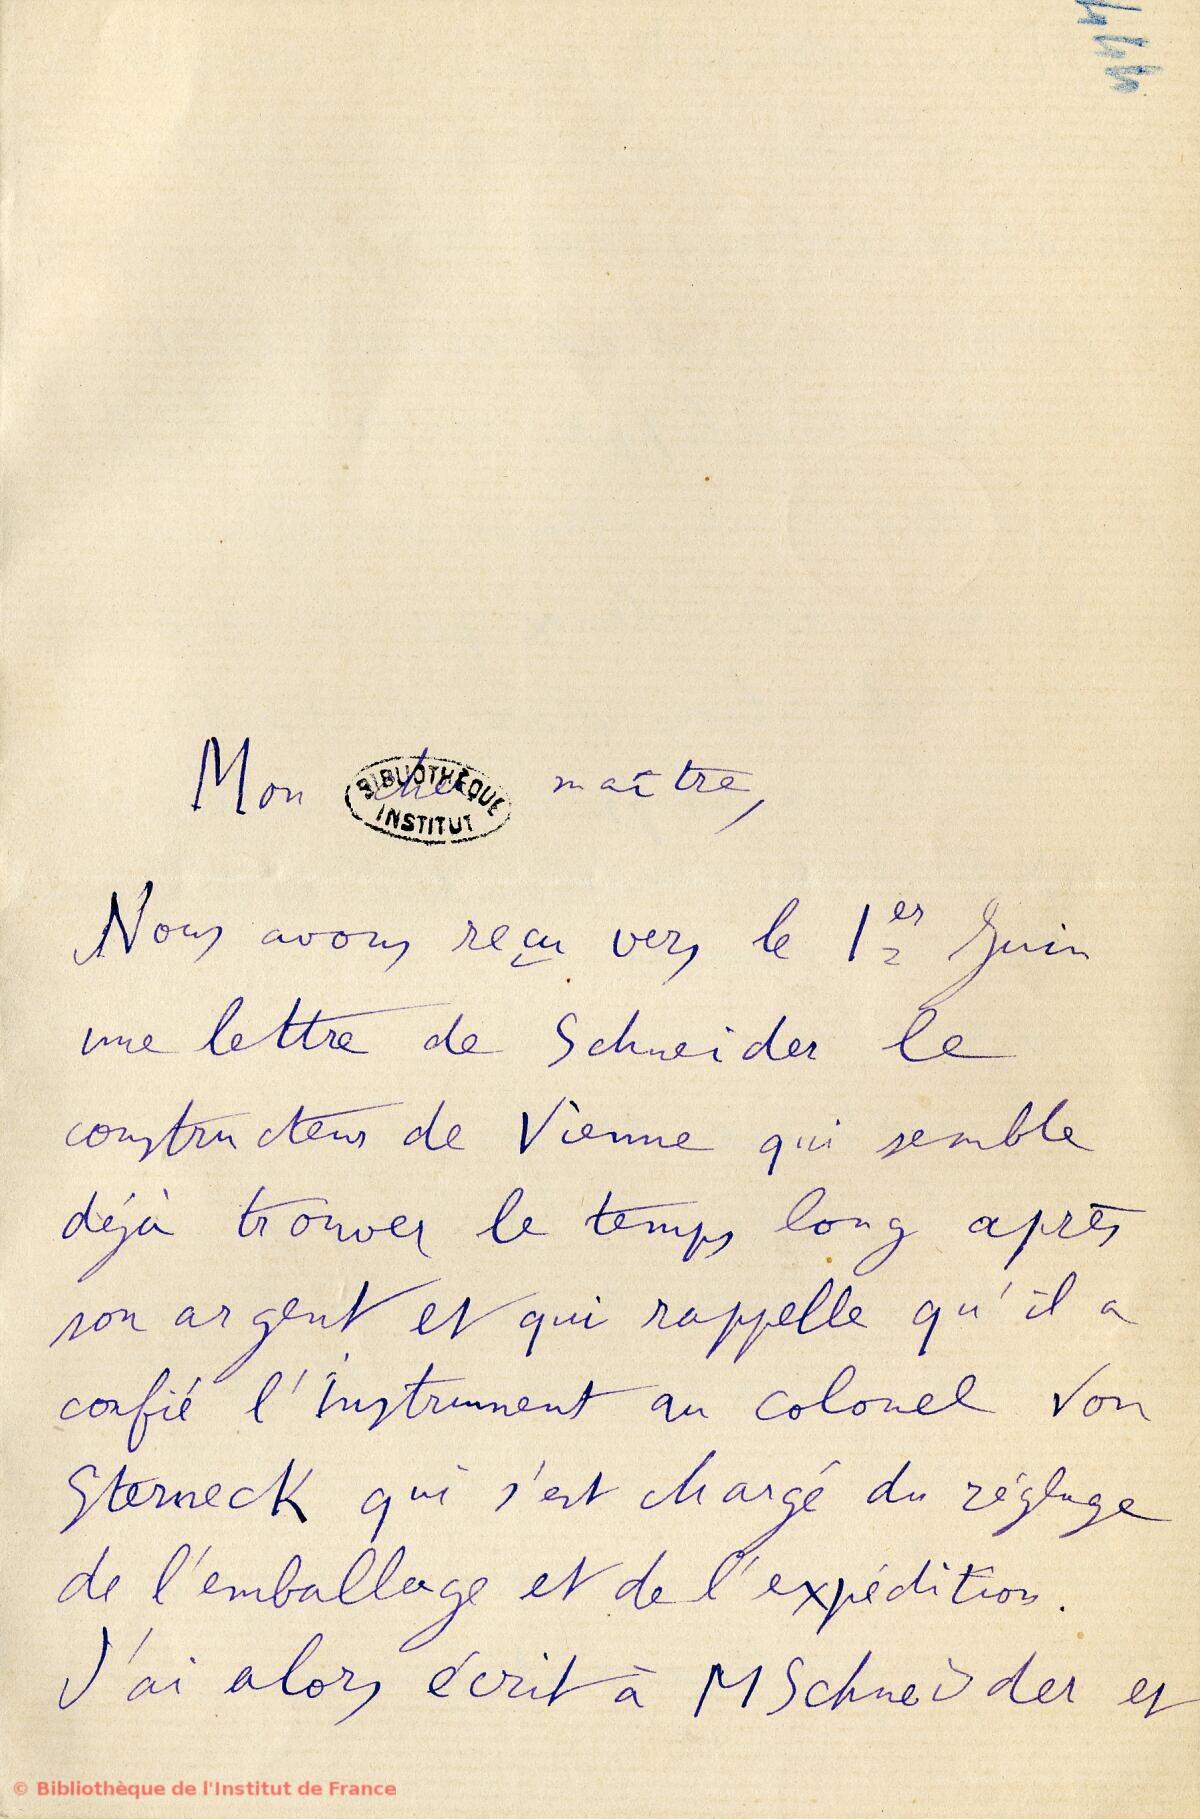 444
Mon cher maître,
BIBLIOTHÈQUE
INSTITUT
Nous avons reçu vers le 1er Juin
une lettre de Schneider le
constructeur de Vienne qui semble
déjà trouver le temps long après
son argent et qui rappelle qu'il a
confié l'instrument au colonel Von
Sterneck qui s'est chargé du réglage
de l'emballage et de l'expédition.
J'ai alors écrit à M Schneider et
© Bibliothèque de l'Institut de France